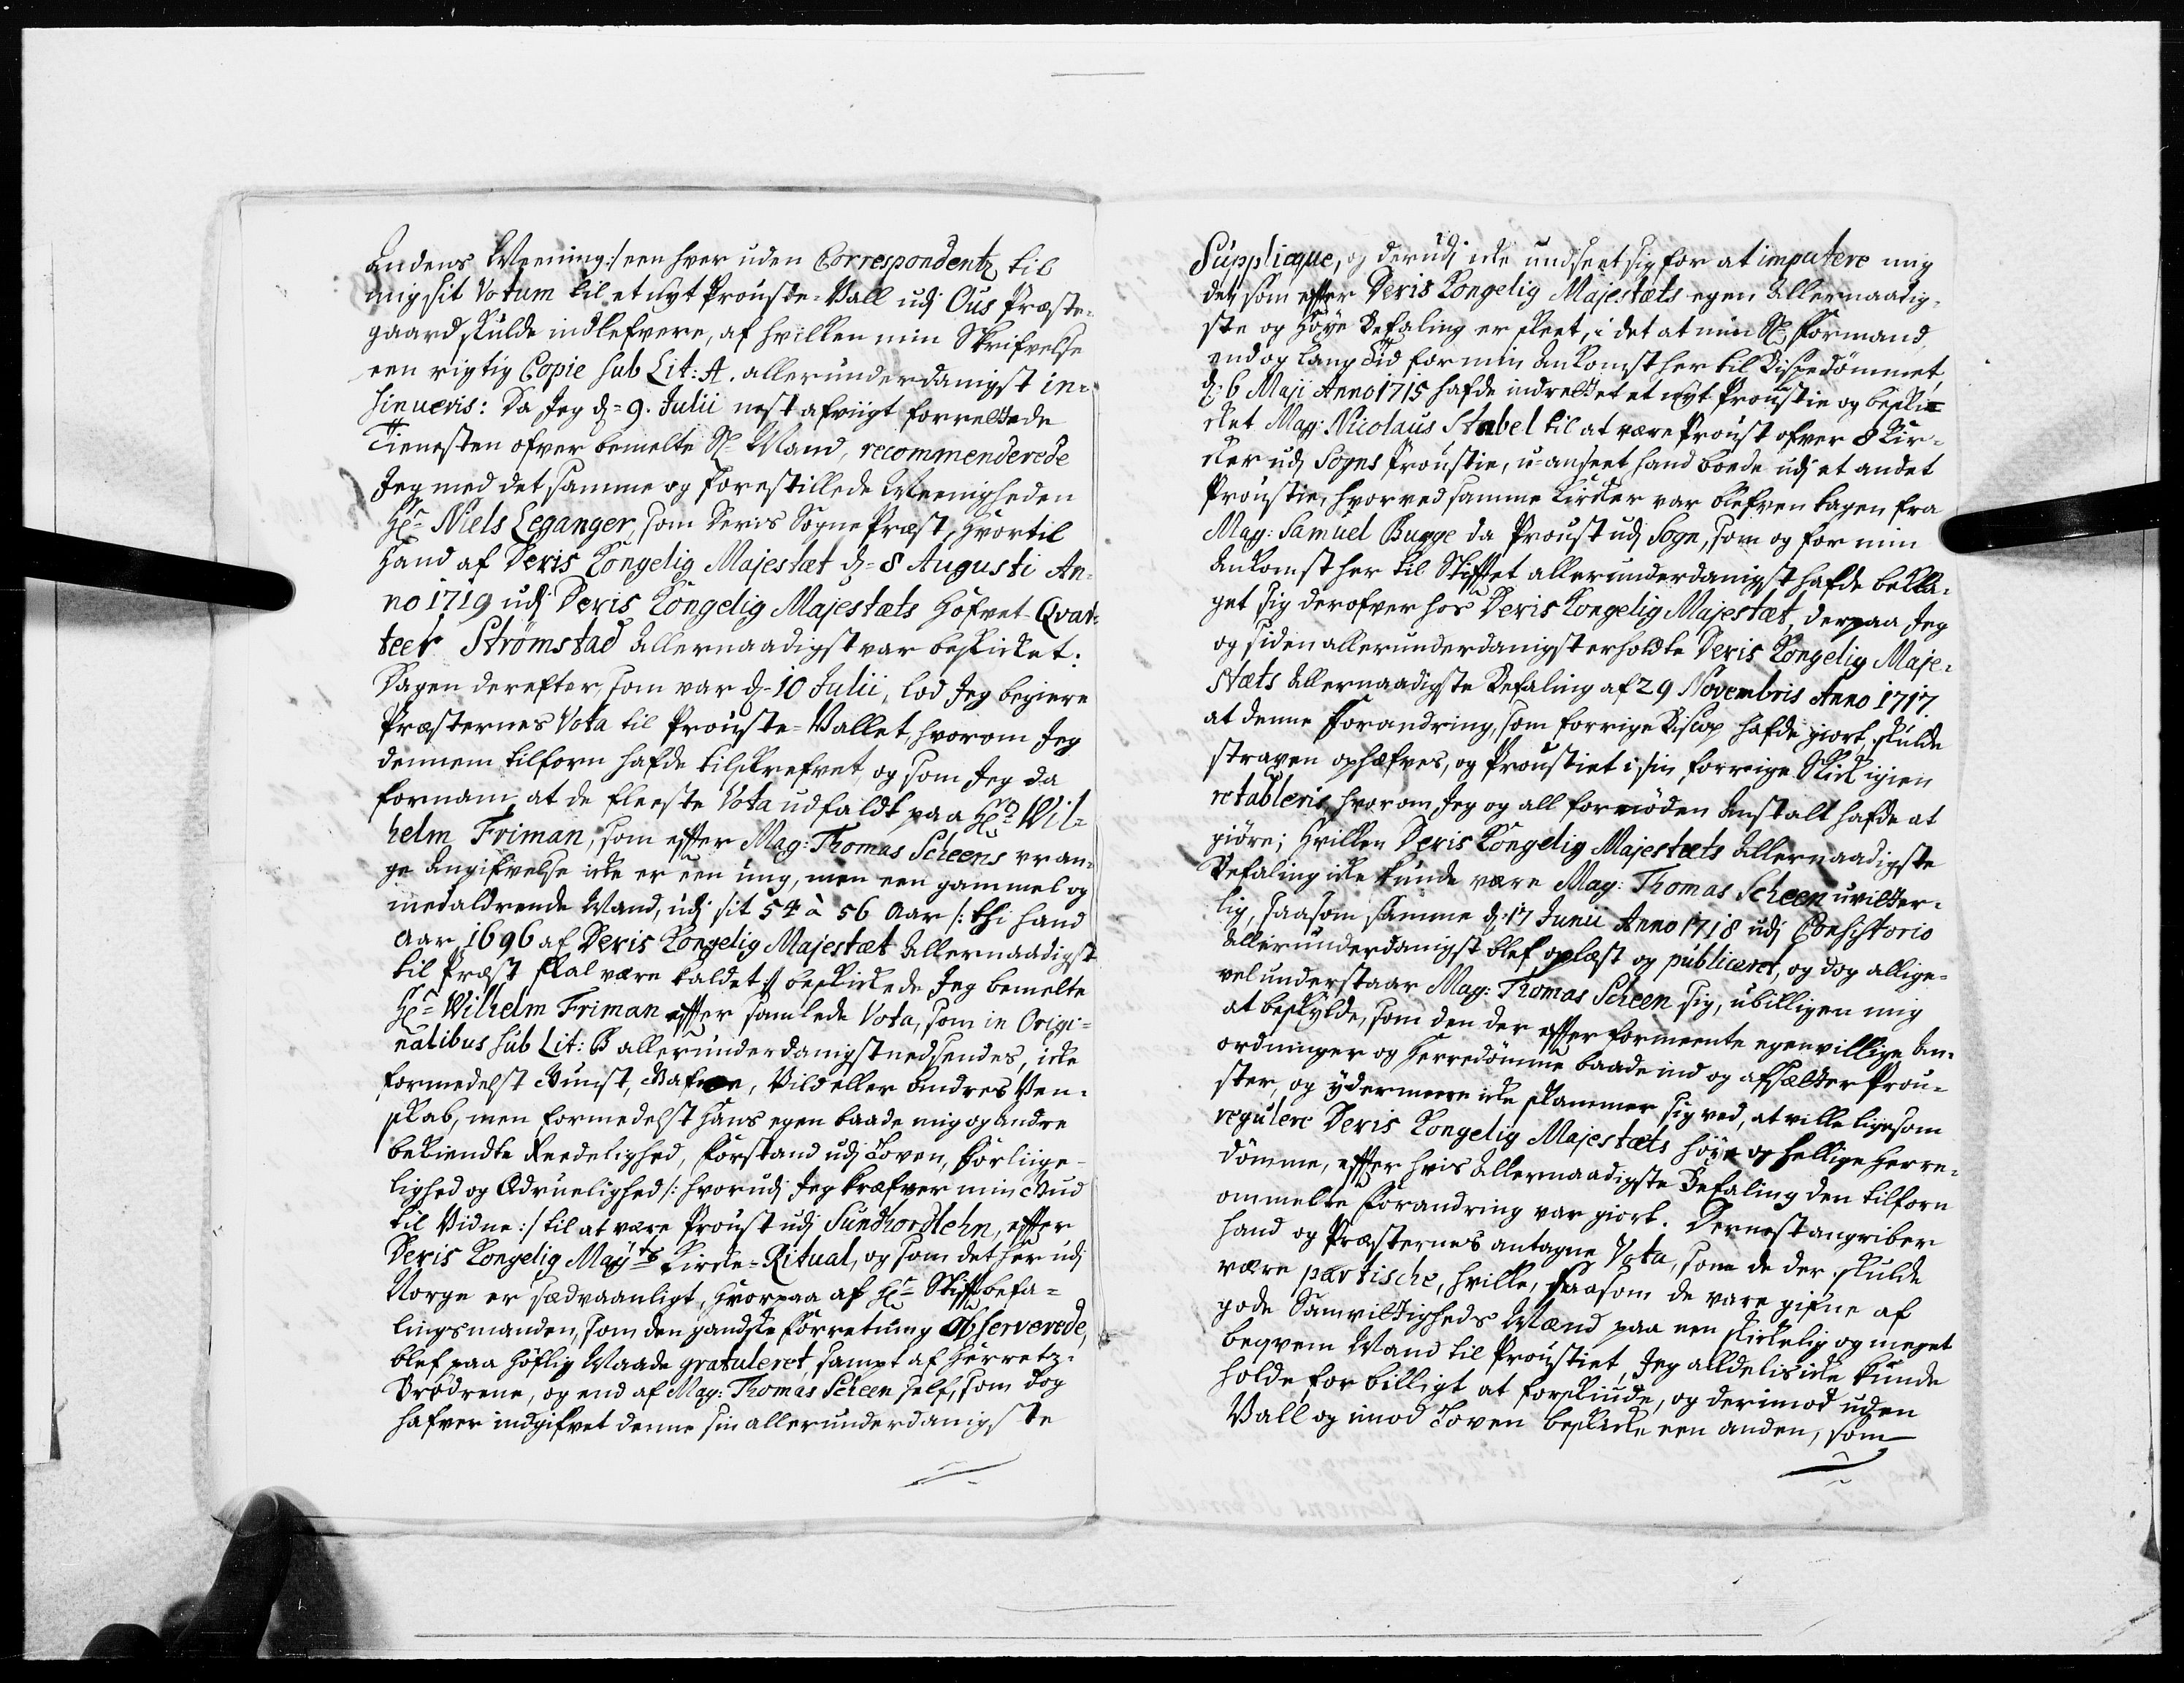 andens Meening:/ een hver uden Correspondentz til
mig sit Votum til et nyt Prouste-Vall udj Ous Præste-
gaard skulde indlefvere, af hvilken min Skrifvelse
een rigtig Copie sub Lit: A. allerunderdanigst in-
sinueris: Da Jeg d= 9. Julii nest afvigt forrettede
Tienesten ofver bemelte Sl: Mand, recommenderede
Jeg med det samme og forestillede Meenigheden
Hr: Niels Leganger, som deris Sogne Præst, hvortil
hand af Deris Kongelig Majestæt d= 8 Augusti An-
no 1719 udj Deris Kongelig Majestæts Hofvet-Qvar-
teer Strömstad Allernaadigst var beskicket.
Dagen derefter, som var d= 10 Julii, lod Jeg begiere
Præsternes Vota til Prouste-Vallet, hvorom Jeg
dennem tilforn hafde tilskrefvet, og som Jeg da
fornam, at de fleeste Vota udfaldt paa Hr: Wil-
helm Friman, som effter Mag: Thomas Scheens vran-
ge Angifvelse icke er een ung, men een gammel og
medaldrende Mand, udj sit 54 à 56 Aar /: thi hand
Aar 1696 af Deris Kongelig Majestæt Allernaadigst
til Præst skal være kaldet:/ beskickede Jeg bemelte
Hr: Wilhelm Friman effter samlede Vota, som in Origi-
nalibus sub Lit: B allerunderdanigst nedsendes, icke
formedelst Gunst, Gafver, Vild eller Andres Ven-
skab, men formedelst hans egen baade mig og andre
bekiendte Reedelighed, Forstand udj Loven, Forliige-
lighed og Ædruelighed /: hvorudj Jeg kræfver min Gud
til Vidne :/ til at være Proust udj Sundhordlehn, effter
Deris Kongelig Mayts Kircke-Ritual, og som det her udj
Norge er sædvaanligt, hvorpaa af Hr: Stifftbefa-
lingsmanden, som den gandske Forretning observerede,
blef paa höflig Maade gratuleret, sampt af Herretz-
Brödrene, og end af Mag: Thomas Scheen self, som dog
hafver indgifvet denne sin allerunderdanigste
Supplicque, og derudj icke undseet sig for at imputere mig
det, som effter Deris Kongelig Majestæts egen Allernaadig-
ste og Höye Befaling er skeet, i det at min Sl: Formand,
endog lang Tid for min Ankomst her til Bispedömmet,
d: 6 Maji Anno 1715 hafde indrettet et nyt Proustie og beski-
cket Mag: Nicolaus Stabel til at være Proust ofver 8 Kir-
cker udj Sogns Proustie, u-anseet hand boede udj et andet
Proustie, hvorved samme Kircker var blefven tagen fra
Mag: Samuel Bugge da Proust udj Sogn, som og for min
Ankomst her til Stifftet allerunderdanigst hafde bekla-
get sig derofver hos Deris Kongelig Majestæt, derpaa Jeg
og siden allerunderdanigst erholdte Deris Kongelig Maje-
stæts Allernaadigste Befaling af 29 Novembris Anno 1717.
at denne Forandring, som forrige Biscop hafde giort, skulde
straxen ophæfves, og Proustiet i sin forrige Skick igien
retableris, hvorom Jeg og all fornöden Anstalt hafde at
giöre; Hvilken Deris Kongelig Majestæts Allernaadigste
Befaling icke kunde være Mag: Thomas Scheen uvitter-
lig, saasom samme d: 17 Junii Anno 1718 udj Consistorio
Allerunderdanigst blef oplæst og publiceret, og dog allige-
vel understaar Mag: Thomas Scheen sig, ubilligen mig
at beskylde, som den der effter formeente egenvillige An-
ordninger og Herredömme baade ind og afsætter Prou-
ster, og ydermeere icke skammer sig ved, at ville ligesom
regulere Deris Kongelig Majestæts Höye og Hellige Herre-
dömme, effter hvis Allernaadigste Befaling den tilforn
ommelte Forandring var giort. Dernest angriber
hand og Præsternes antagne Vota, som de der skulde
være partische, hvilke, saasom de vare gifne af
gode Samvittigheds Mænd paa een skickelig og meget
beqvem Mand til Proustiet, Jeg alldelis icke kunde
holde for billigt at forskiude, og derimod uden
Vall og imod Loven beskicke een anden, som